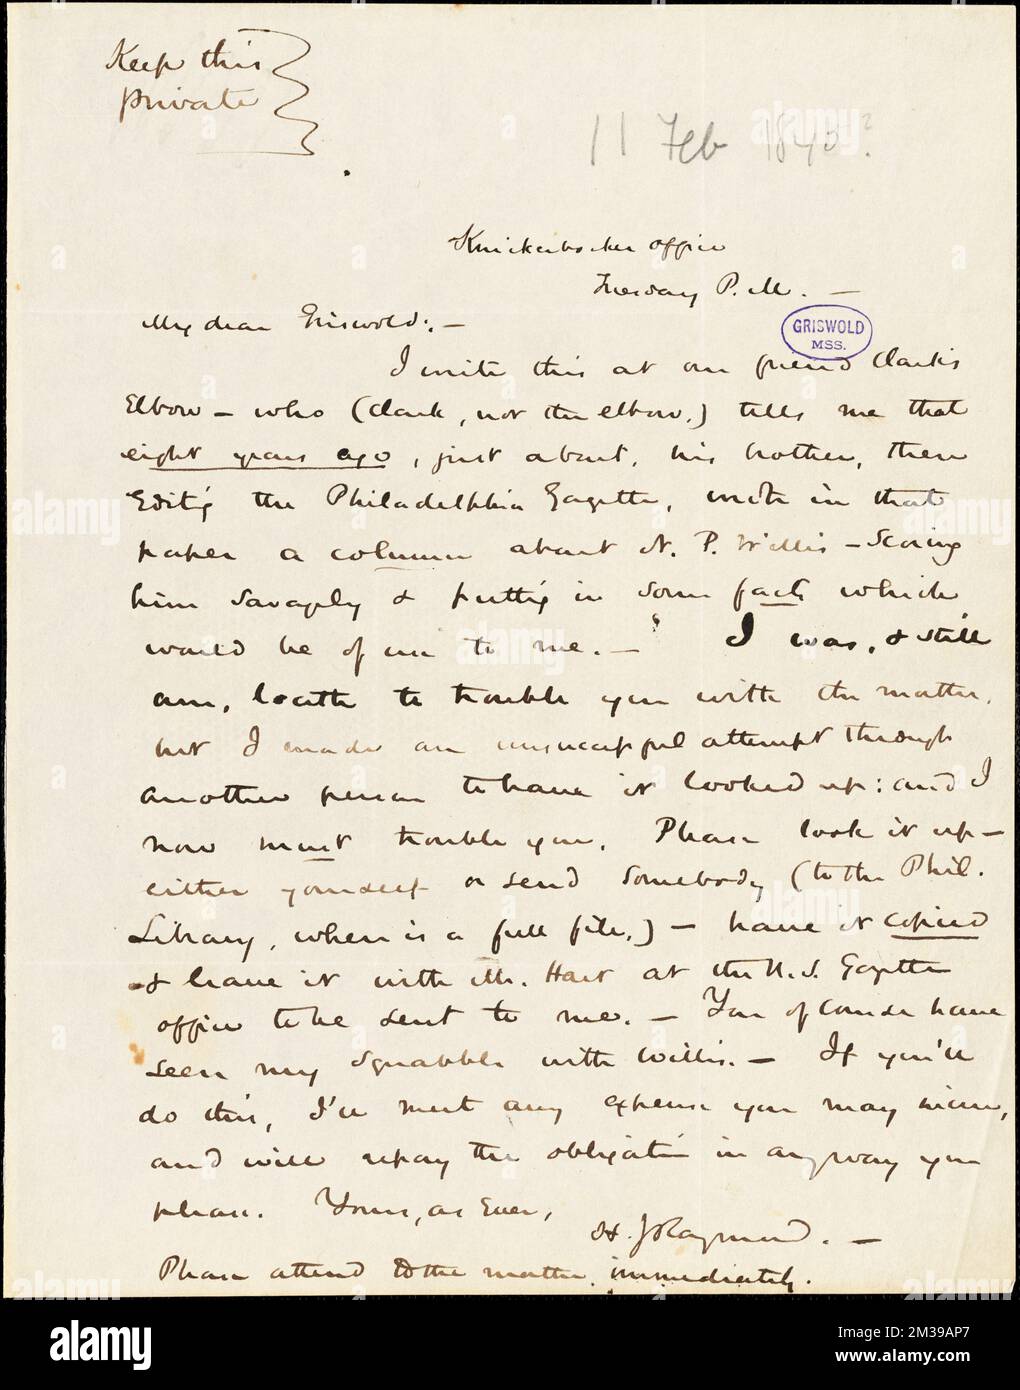 Keep this
private
11 Feb 1843?
Knickerbocker office
Tuesday P.M. —
My dear Griswold: —
GRISWOLD
MSS.
I write this at our friend Clark's
Elbow — who (Clark, not the elbow,) tells me that
eight years ago, just about, his brother, then
Edit'g the Philadelphia Gazette, wrote in that
paper a column about N. P. Willis — scoring
him savagely & putt'g in some facts which
would be of use to me. — I was, & still
am, loath to trouble you with the matter,
but I made an unsuccessful attempt through
another person to have it looked up: and I
now must trouble you. Please look it up —
either yourself or send somebody (to the Phil.
Library, where is a full file,) — have it copied
& leave it with Mr. Hart at the U.S. Gazette
office to be sent to me. — You of course have
seen my squabble with Willis. — If you'll
do this, I'll meet any expense you may incur,
and will repay the obligation in anyway you
please. Yours, as Ever,
H. J Raymond. —
Please attend to the matter immediately.
alamy
Image ID: 2M39AP7
www.alamy.com